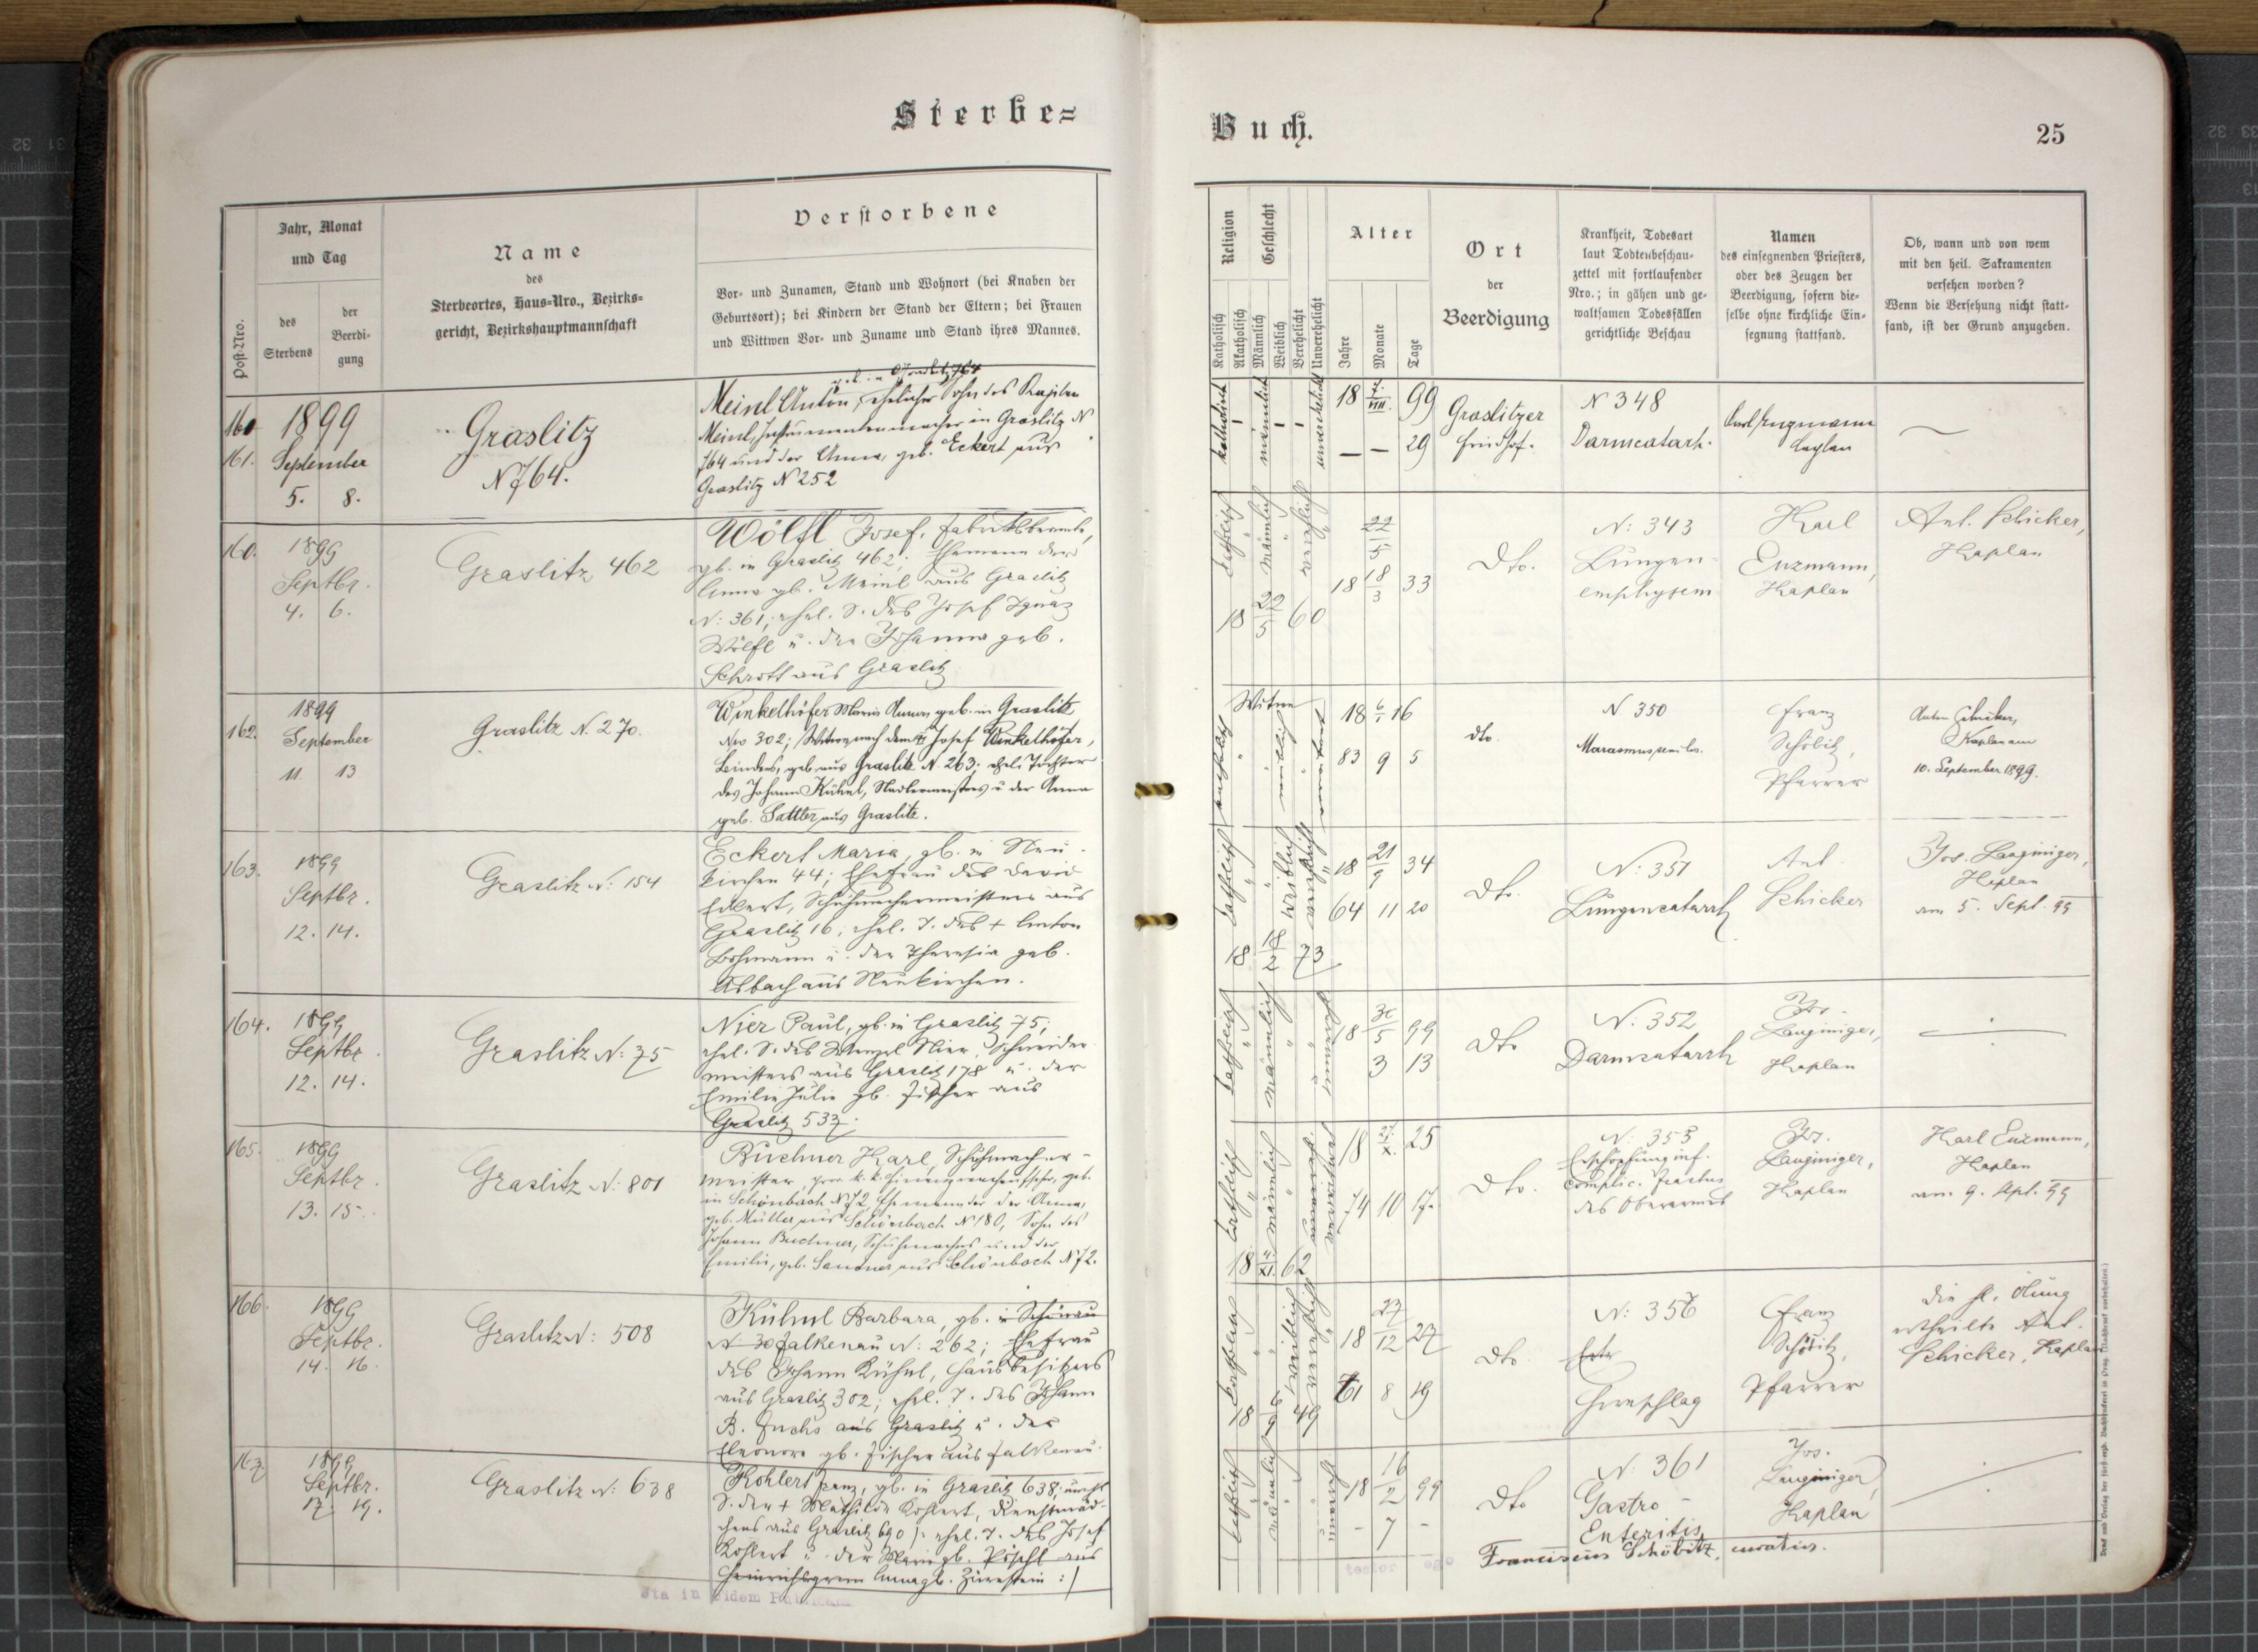 Sterbe=
Jahr, Monat
und Tag
Name
des
Sterbeortes, Haus=Nro., Bezirks=
gericht, Bezirkshauptmannschaft
Verstorbene
Post-Nro.
des
Sterbens
der
Beerdi-
gung
Vor- und Zunamen, Stand und Wohnort (bei Knaben der
Geburtsort); bei Kindern der Stand der Eltern; bei Frauen
und Wittwen Vor- und Zuname und Stand ihres Mannes.
160
161.
1899
September
5. 8.
Graslitz
N 764.
Meinl Anton, ehelicher Sohn des
Meinl, Instrumentenmacher in Graslitz N
764 und der Anna, geb. Eckert aus
Graslitz N 252
160.
1899
Septbr.
4. 6.
Graslitz 462
Wölfl Josef, Fabriksbeamte,
gb. in Graslitz 462; Ehemann der
Anna gb. Meinl aus Graslitz
N: 361; ehel. S. des Josef Ignaz
Wölfl u. der Johanna geb.
Schrott aus Graslitz
162.
1899
September
11. 13
Graslitz N. 270.
Winkelhöfer Maria Anna, geb. in Graslitz
Nro 302; Witwe nach dem † Josef Winkelhöfer,
geb. aus Graslitz N. 263; ehel. Tochter
des Johann Kühnl, Nadlermeisters u der Anna
geb. Sattler aus Graslitz.
163.
1899
Septbr.
12. 14.
Graslitz N: 154
Eckert Maria, gb. in Neu-
kirchen 44; Ehefrau des David
Eckert, Schuhmachermeisters aus
Graslitz 16; ehel. T. des † Anton
u. der Theresia geb.
Asbach aus Neukirchen.
164.
1899
Septbr.
12. 14.
Graslitz N: 75
Nier Paul, gb. in Graslitz 75;
ehel. S. des Wenzel Nier, Schneider-
meisters aus Graslitz 178 u. der
Emilie Julie gb. Fischer aus
Graslitz 537.
165.
1899
Septbr.
13. 15.
Graslitz N: 801
Büchner Karl, Schuhmacher-
meister, geb.
in Schönbach N 72, Ehemann der Anna,
geb. Müller aus Schönbach N 180, Sohn des
Johann Buchner, Schuhmachers und der
Emilie, geb. Sandner aus Schönbach N 72.
166.
1899
Septbr.
14. 16.
Graslitz N: 508
Kühnl Barbara, gb. in Schönau
N 30 Falkenau N: 262; Ehefrau
des Johann Kühnl, Hausbesitzers
aus Graslitz 302; ehel. T. des Johann
B. Fuchs aus Graslitz u. der
Eleonore gb. Fischer aus Falkenau.
167
1899
Septbr.
17. 19.
Graslitz N: 638
Kohlert Franz, gb. in Graslitz 638; unehl.
S. der † Mathilde Kohlert, Dienstmäd-
chens aus Graslitz 690 /: ehel. T. des Josef
Kohlert u. der Marie gb. Pöschl aus
:/
Ita in eidem
Buch.
25
Religion
Geschlecht
Alter
Ort
der
Beerdigung
Krankheit, Todesart
laut Todtenbeschau-
zettel mit fortlaufender
Nro.; in gähen und ge-
waltsamen Todesfällen
gerichtliche Beschau
Namen
des einsegnenden Priesters,
oder des Zeugen der
Beerdigung, sofern die-
selbe ohne kirchliche Ein-
segnung stattfand.
Ob, wann und von wem
mit den heil. Sakramenten
versehen worden?
Wenn die Versehung nicht statt-
fand, ist der Grund anzugeben.
Katholisch
Akatholisch
Männlich
Weiblich
Verehelicht
Unverehelicht
Jahre
Monate
Tage
katholisch
männlich
unverehelicht
18 99
— — 29
Graslitzer
Friedhof.
N 348
Darmcatarh.
Karl Enzmann
Kaplan
katholisch
männlich
verehelicht
18 22/5 60
18 18/3 33
Dto.
N: 343
Lungen-
emphysem
Karl
Enzmann,
Kaplan
Ant. Schicker,
Kaplan
Witwe
weiblich
18 6/ 16
83 9 5
dto.
N 350
Marasmus senilis.
Franz
Schöbitz,
Pfarrer
Anton Schicker,
Kaplan am
10. September 1899.
katholisch
weiblich
verehelicht
18 21/9 34
64 11 20
18 18/2 73
Dto.
N: 351
Lungencatarrh
Ant.
Schicker
Jos. Langiniger,
Kaplan
am 5. Sept. 99
katholisch
männlich
18 30/5 99
3 13
Dto
N: 352
Darmcatarrh
Jos.
Langiniger,
Kaplan
katholisch
männlich
verwitwet
18 27/X. 25
74 10 17.
18 62
Dto.
N: 353
Erschöpfung inf.
complic. Fractur
des Oberarmes
Jos.
Langiniger,
Kaplan
Karl Enzmann,
Kaplan
am. 9. Spt. 99
katholisch
weiblich
verehelicht
18 27/12 27
61 8 19
18 49
Dto
N: 356
Hirnschlag
Franz
Schöbitz,
Pfarrer
die hl. Ölung
ertheilte Ant.
Schicker, Kaplan
katholisch
männlich
18 16/2 99
- 7 -
Dto
N: 361
Gastro-
Enteritis
Jos.
Langiniger,
Kaplan
Franciscus Schöbitz, curatus.
testor ego